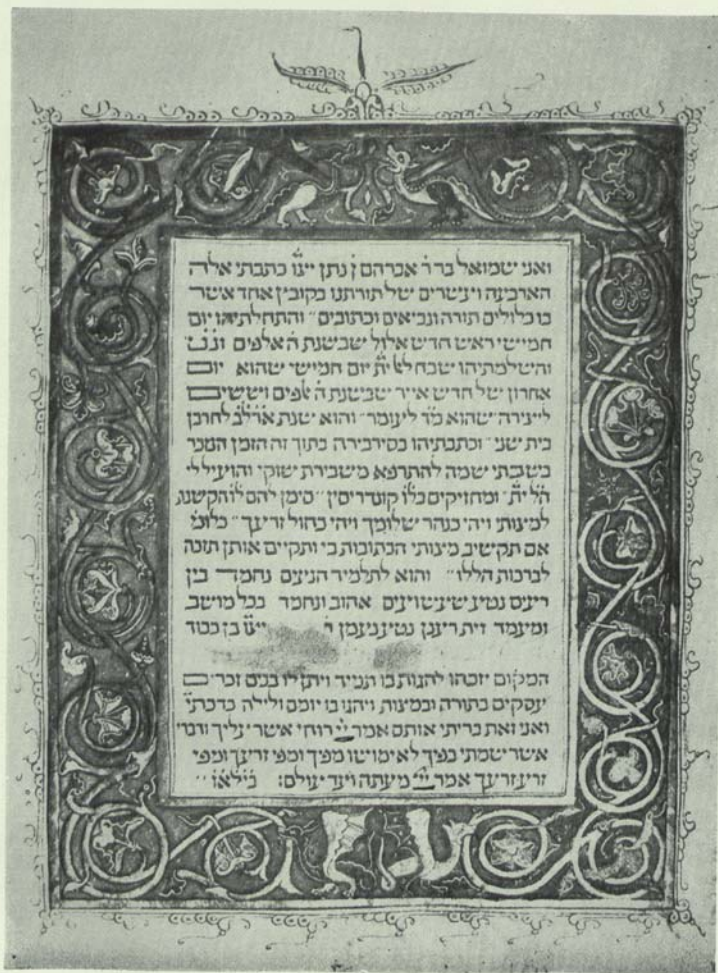 ואני שמואל בר ר אברהם ן נתן יינו כתבתי אלה
הארבעה ועשרים של תורתנו בקובץ אחד אשר
בו כלולים תורה ונביאים וכתובים והתחלתיהו יום
חמישי ראש חדש אלול שבשנת ה אלפים
והשלמתיהו יום חמישי שהוא יום
אחרון של חדש אייר שבשנת ה אלפים וששים
ליצירה שהוא מד לעומר והוא שנת לחרבן
בית שני וכתבתיהו בסירבירה בתוך זה הזמן הנזכר
בשבתי שמה להתרפא משבירת שוקי והועיל לי
ומחזיקים בלו קונדרסין סימן להם לו הקשבת
למצותי ויהי כנהר שלומך ויהי כחול זרעך כלומ
אם תקשיב מצותי הכתובות בי ותקיים אותן תזכה
לברכות הללו והוא לתלמיד הנעים נחמד בין
ריעים נטיע שעשועים אהוב ונחמד בכל מושב
ומעמד זית רענן נטע נעמן ר יינו בן כבוד
המקום יזכהו להגות בו תמיד ויתן לו בנים זכרים
עסקים בתורה ובמצות ויהגו בו יומם ולילה כדכת
ואני זאת בריתי אותם אמר יי רוחי אשר עליך ודברי
אשר שמתי בפיך לא ימושו מפיך ומפי זרעך ומפי
זרע זרעך אמר יי מעתה ועד עולם: